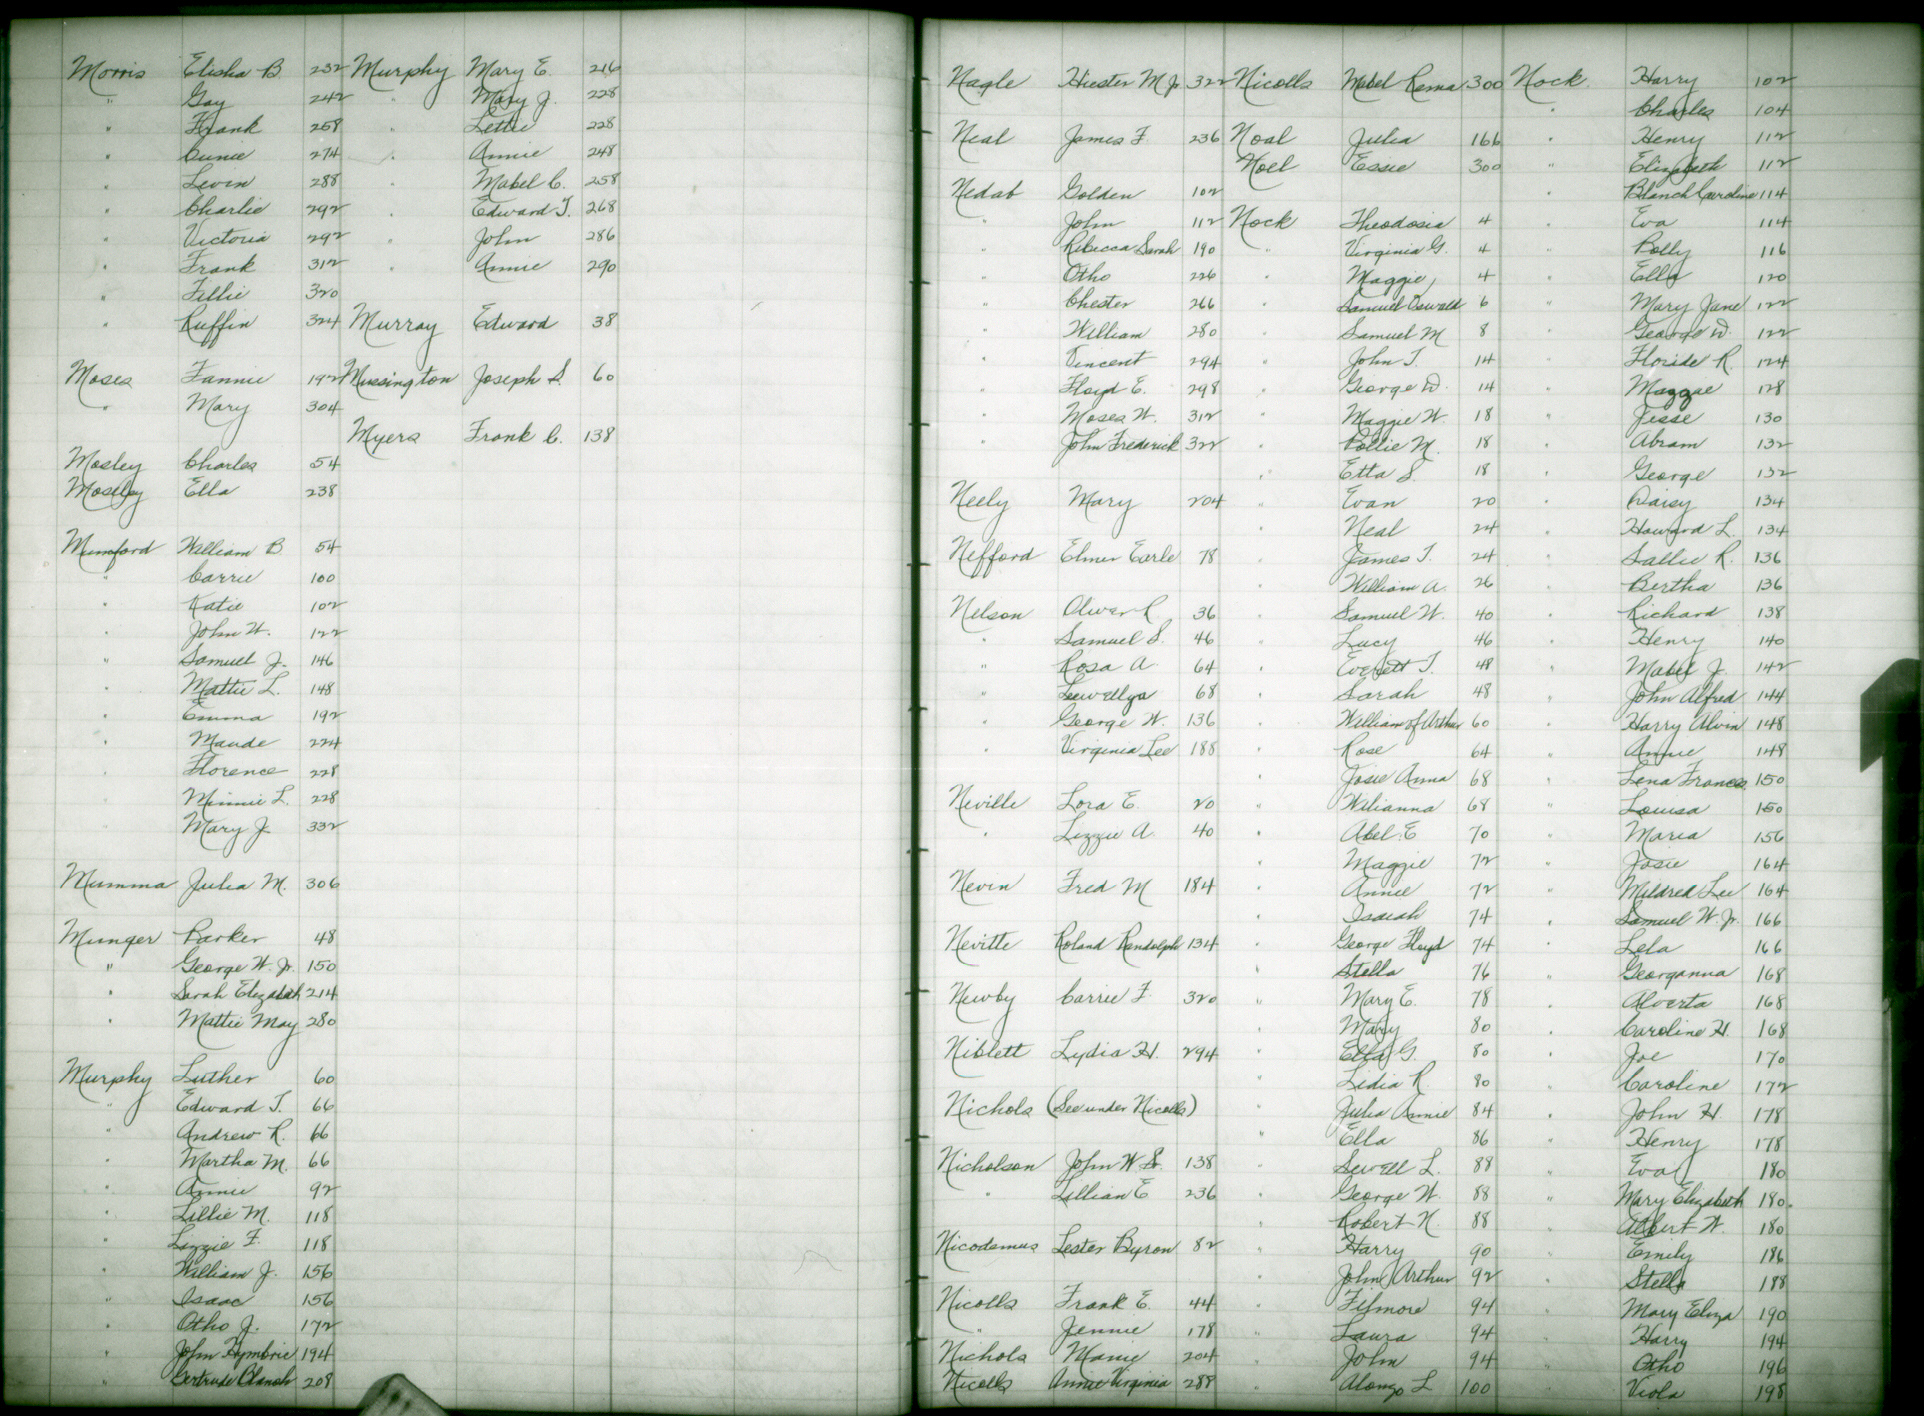 Morris Elisha B 232
" Gay 242
" Frank 258
" Cunie 274
" Levin 288
" Charlie 292
" Victoria 292
" Frank 312
" Tillie 320
" Ruffin 324
Moses Fannie 192
" Mary 304
Mosley Charles 54
Moseley Ella 238
Mumford William B 54
" Carrie 100
" Katie 102
" John W. 122
" Samuel J. 146
" Mattie L. 148
" Emma 192
" Maude 224
" Florence 228
" Minnie L. 228
" Mary J. 332
Mumma Julia M. 306
Munger Parker 48
" George W. Jr. 150
" Sarah Elizabeth 214
" Mattie May 280
Murphy Luther 60
" Edward T. 66
" Andrew R. 66
" Martha M. 66
" Annie 92
" Lillie M. 118
" Lizzie F. 118
" William J. 156
" Isaac 156
" Otho J. 172
" John 194
" Gertrude Blanch 208
Murphy Mary E. 216
" Mary J. 228
" Lettie 228
" Annie 248
" Mabel C. 258
" Edward T. 268
" John 286
" Annie 290
Murray Edward 38
Mussington Joseph S. 60
Myers Frank C. 138
Nagle Hiester M Jr 322
Neal James F. 236
Nedab Golden 102
" John 112
" Rebecca Sarah 190
" Otho 226
" Chester 266
" William 280
" Vincent 294
" Floyd E. 298
" Moses W. 312
" John Frederick 322
Neely Mary 204
Nefford Elmer Earle 78
Nelson Oliver R 36
" Samuel S. 46
" Rosa A. 64
" Leewellyn 68
" George W. 136
" Virginia Lee 188
Neville Lora E. 20
" Lizzie A. 40
Nevin Fred M 184
Nevitte Roland Randolph 134
Newby Carrie F. 320
Niblett Lydia H. 294
Nichols (See under Nicolls)
Nicholson John W. S. 138
" Lillian E 236
Nicodemus Lester Byron 82
Nicolls Frank E. 44
" Jennie 178
Nichols Mamie 204
Nicolls Annie Virginia 288
Nicolls Mabel Rema 300
Noal Julia 166
Noel Essie 300
Nock Theodosia 4
" Virginia G. 4
" Maggie 4
" Samuel Oswald 6
" Samuel M 8
" John T. 14
" George D. 14
" Maggie W. 18
" Pollie M. 18
" Etta S. 18
" Evan 20
" Neal 24
" James T. 24
" William A. 26
" Samuel W. 40
" Lucy 46
" Everett T. 48
" Sarah 48
" William of Arthur 60
" Rose 64
" Josie Anna 68
" Wilianna 68
" Abel E 70
" Maggie 72
" Annie 72
" Isaiah 74
" George Floyd 74
" Stella 76
" Mary E. 78
" Mary 80
" Ella G. 80
" Lidia R. 80
" Julia Annie 84
" Ella 86
" Sewell L. 88
" George W. 88
" Robert N. 88
" Harry 90
" John Arthur 92
" Filmore 94
" Laura 94
" John 94
" Alonzo L 100
Nock Harry 102
" Charles 104
" Henry 112
" Elizabeth 112
" Blanch Caroline 114
" Eva 114
" Polly 116
" Ella 120
" Mary Jane 122
" George D. 122
" Floride R. 124
" Maggie 128
" Jesse 130
" Abram 132
" George 132
" Daisy 134
" Howard L. 134
" Sallie R. 136
" Bertha 136
" Richard 138
" Henry 140
" Mabel J. 142
" John Alfred 144
" Harry Alvin 148
" Annie 148
" Lena Frances 150
" Louisa 150
" Maria 156
" Josie 164
" Mildred Lee 164
" Samuel W. Jr. 166
" Lela 166
" Georganna 168
" Alverta 168
" Caroline H. 168
" Joe 170
" Caroline 172
" John H. 178
" Henry 178
" Eva 180
" Mary Elizabeth 180.
" Albert W. 180
" Emily 186
" Stella 188
" Mary Eliza 190
" Harry 194
" Otho 196
" Viola 198